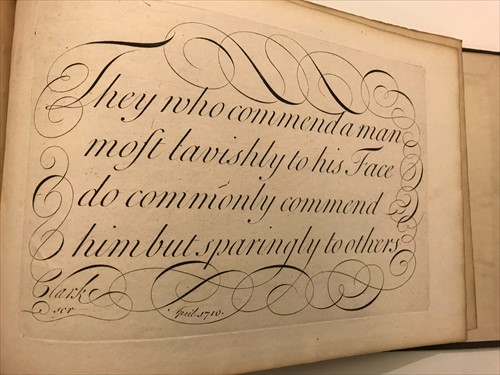 They who commend a man
moſt lavishly to his Face
do commonly commend
him but sparingly to others
Clark
scr
April. 1710.